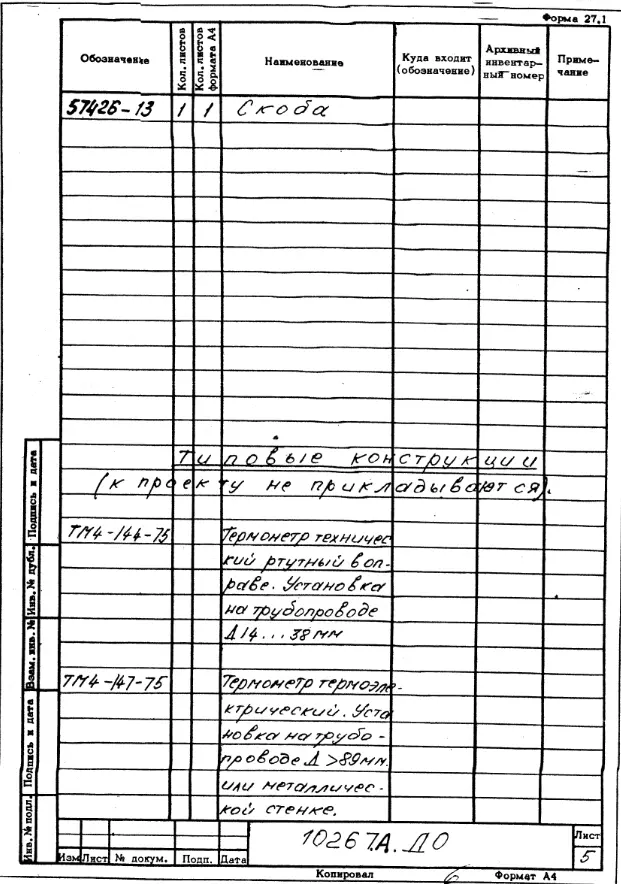 Форма 27.1
Обозначение Кол. листов Кол. листов формата А4 Наименование Куда входит (обозначение) Архивный инвентарный номер Примечание
57426-13 1 1 Скоба
Типовые конструкции
(к проекту не прикладываются).
ТМ4-144-75 Термометр техничес
кий ртутный в оп-
раве. Установка
на трубопроводе
Д14...38 мм
ТМ4-147-75 Термометр термоэле-
ктрический. Уста
новка на трубо-
проводе Д >89мм.
или металличес-
кой стенке.
Подпись и дата
Инв. № дубл.
Взам. инв. №
Подпись и дата
Инв. № подл.
10267А.ДО
Лист
5
Изм Лист № докум. Подп. Дата
Копировал 6 Формат А4